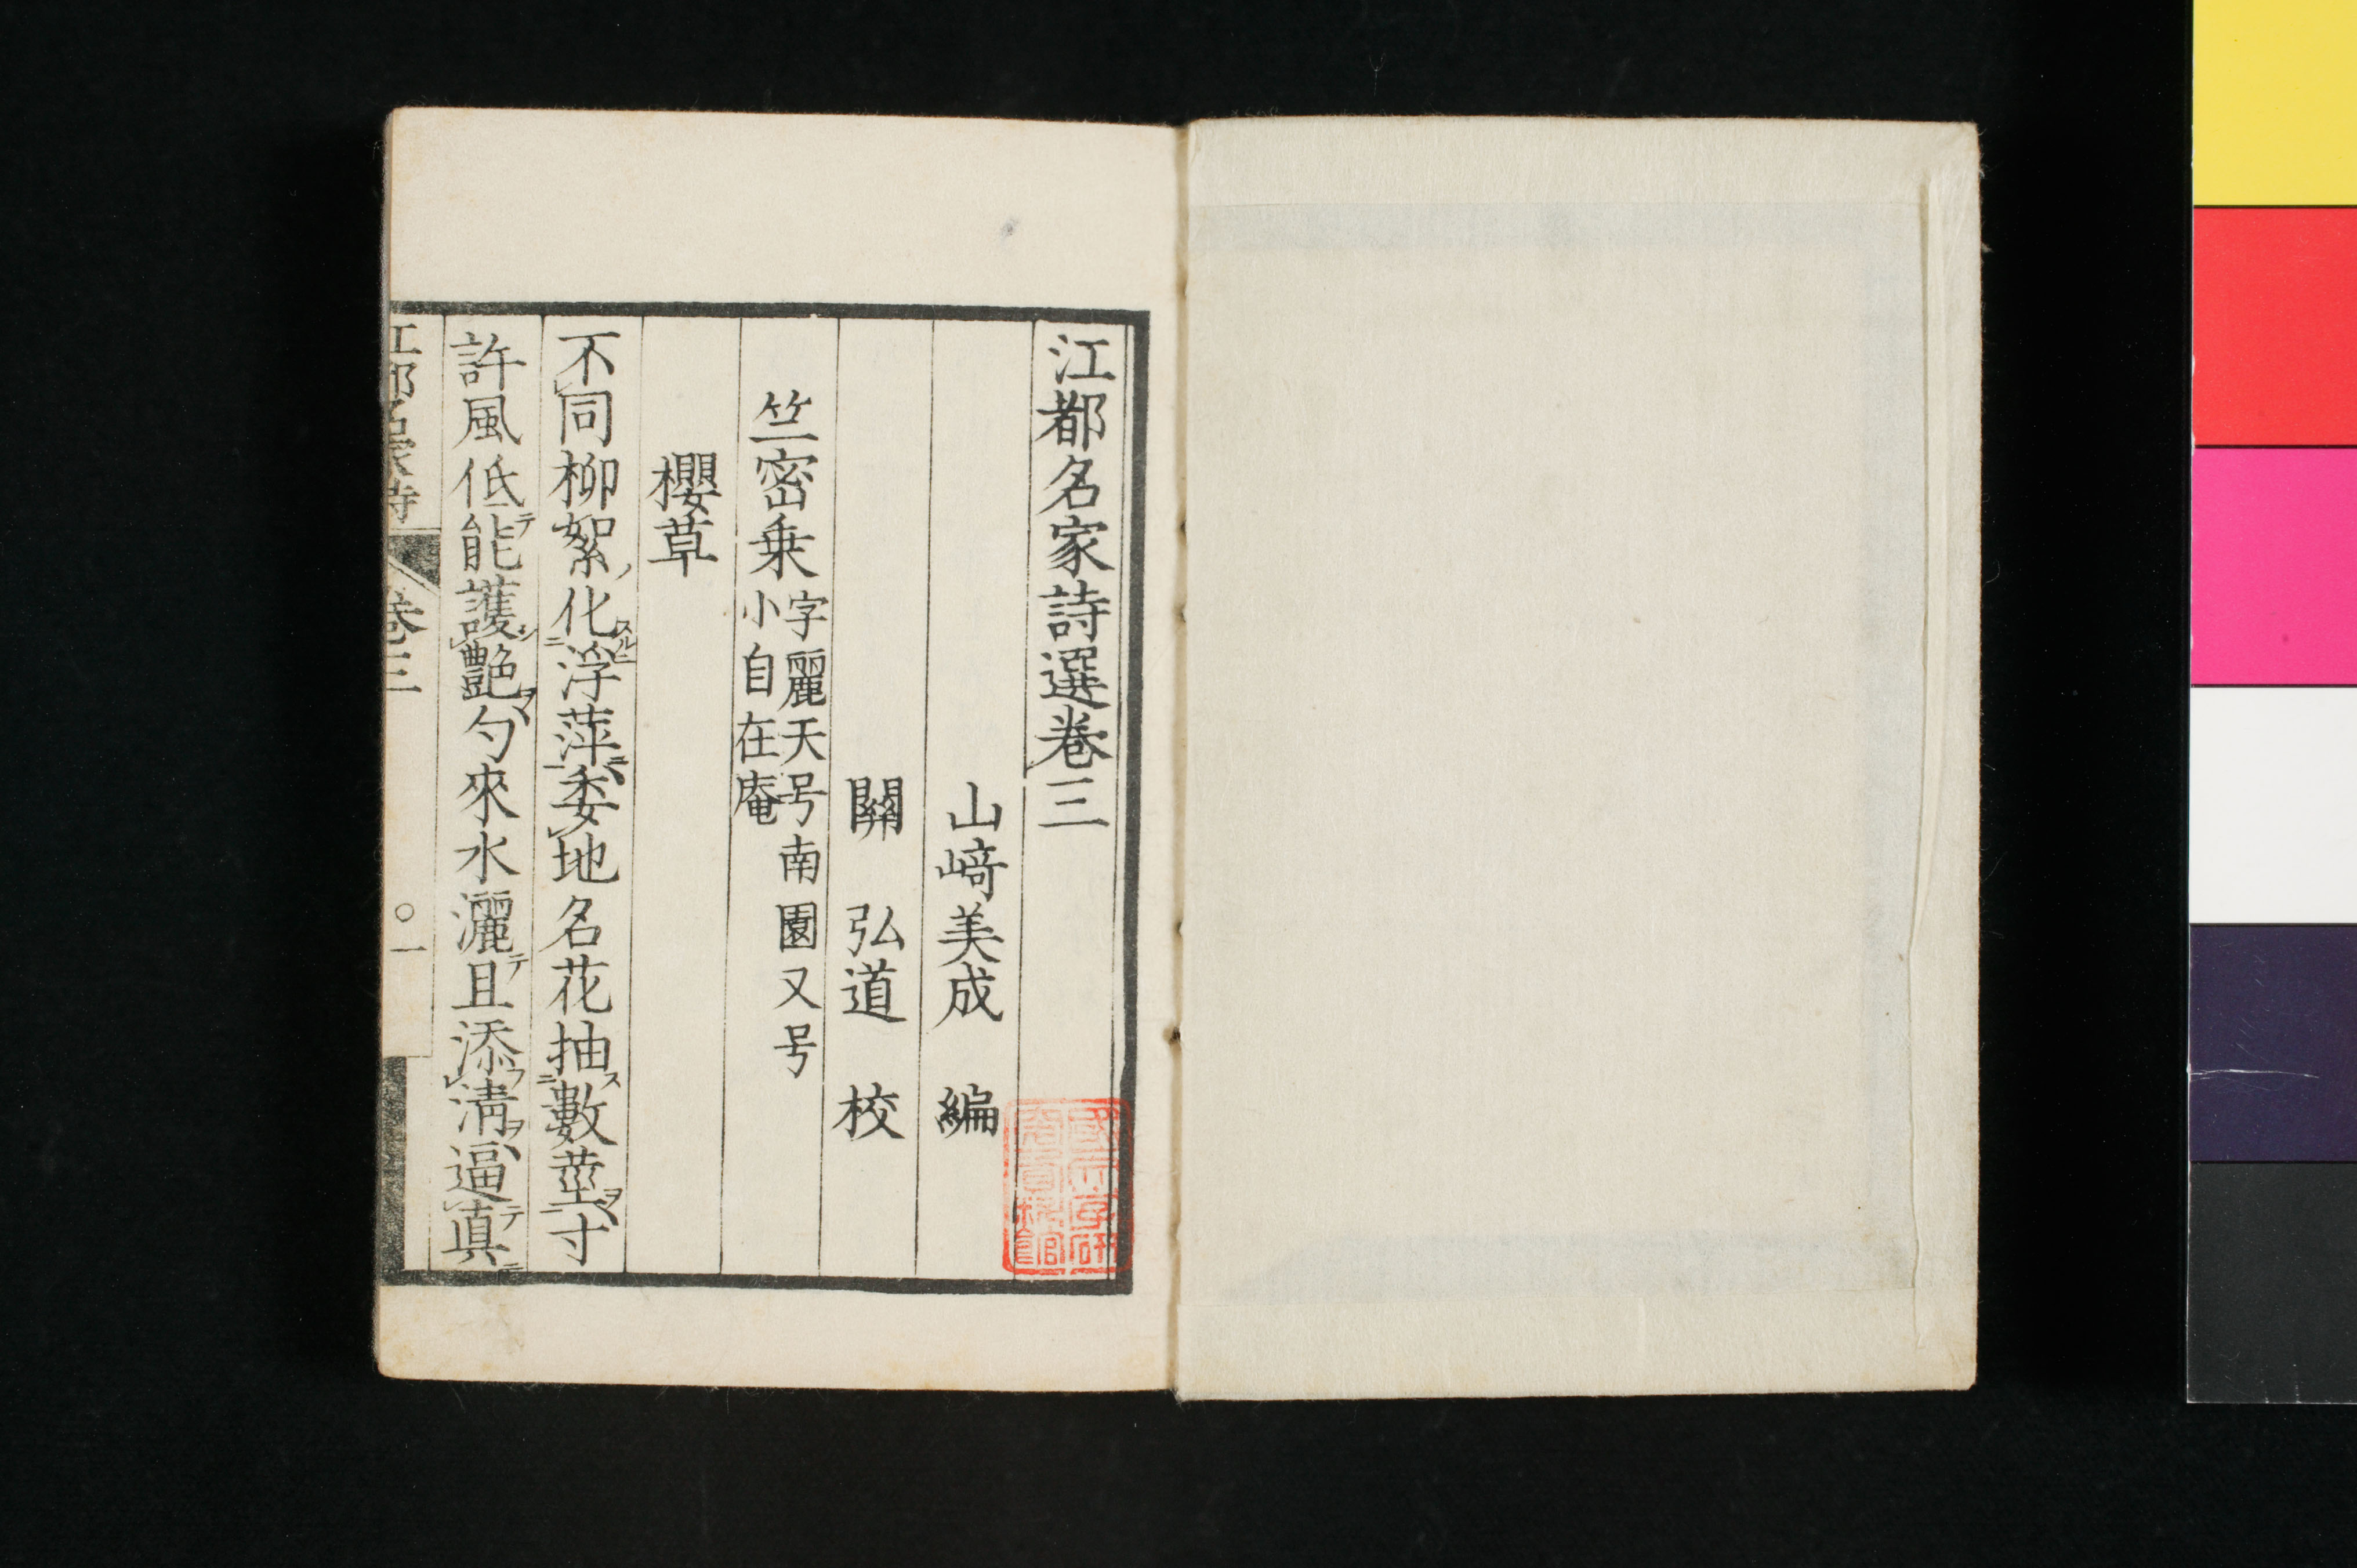 江都名家詩選卷三
山﨑美成 編
關 弘道 校
竺密乗 字麗天号南園又号
小自在庵
櫻草
不同柳絮化浮萍委地名花抽數莖寸
許風低能護艶勺來水灑且添淸逼真
江都名家詩 卷三 〇一
國文學研
究資料館